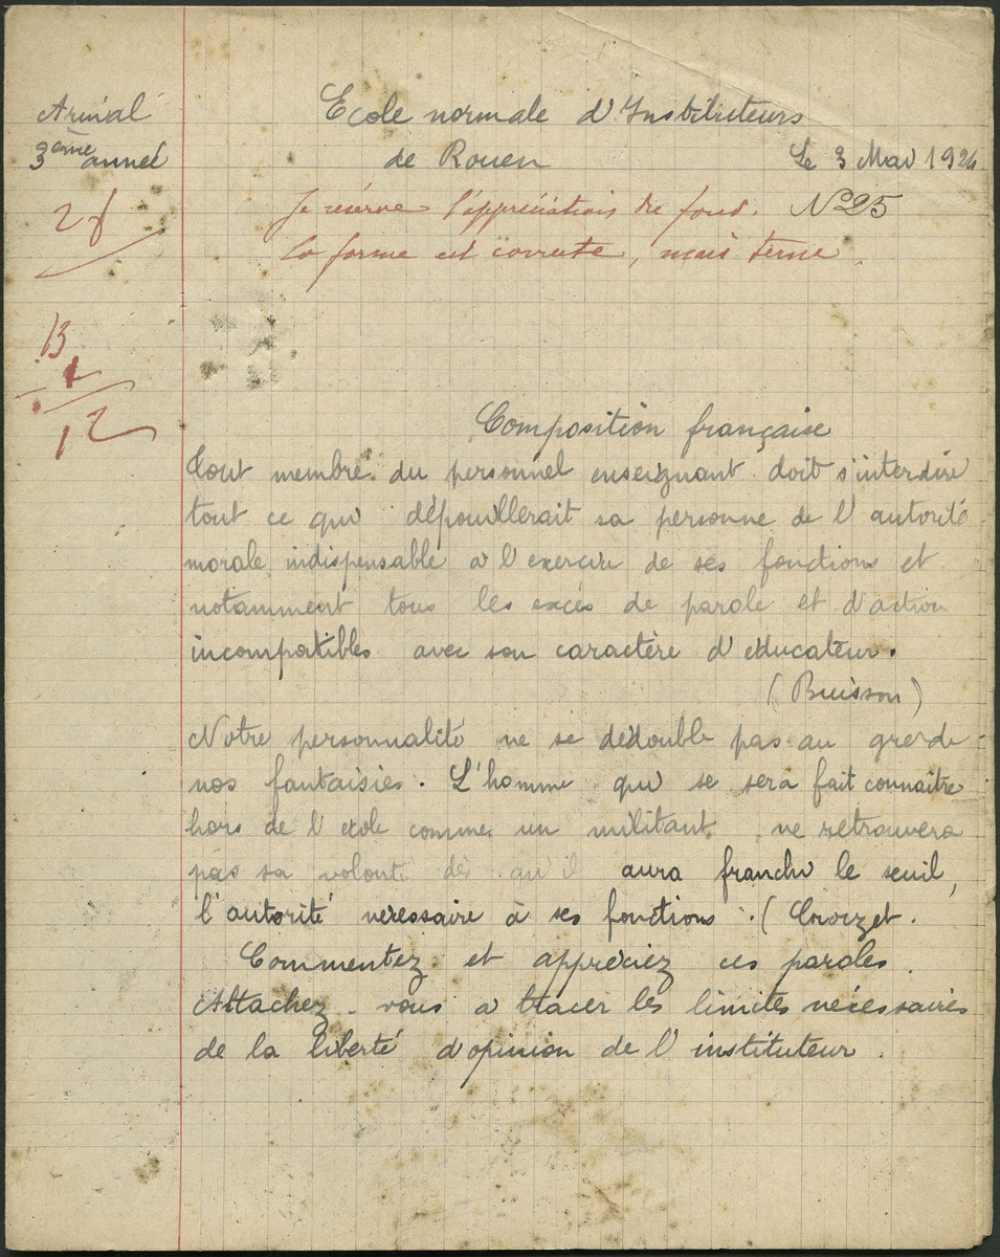 3ème année
Ecole normale d'Instituteurs
de Rouen
Le 3 Mai 192
Je réserve l'appréciation de fond. N° 25
la forme est correcte, mais terne.
13
1
12
Composition française
Tout membre du personnel enseignant doit s'interdire
tout ce qui dépouillerait sa personne de l'autorité
morale indispensable à l'exercice de ses fonctions et
notamment tous les excès de parole et d'action
incompatibles avec son caractère d'éducateur.
(Buisson)
Notre personnalité ne se dédouble pas au gré de
nos fantaisies. L'homme qui se sera fait connaître
hors de l'école comme un militant ne retrouvera
pas sa volont dès qu'il aura franchi le seuil,
l'autorité nécessaire à ses fonctions. (Croizet.
Commentez et appréciez ces paroles.
Attachez-vous à tracer les limites nécessaires
de la liberté d'opinion de l'instituteur.